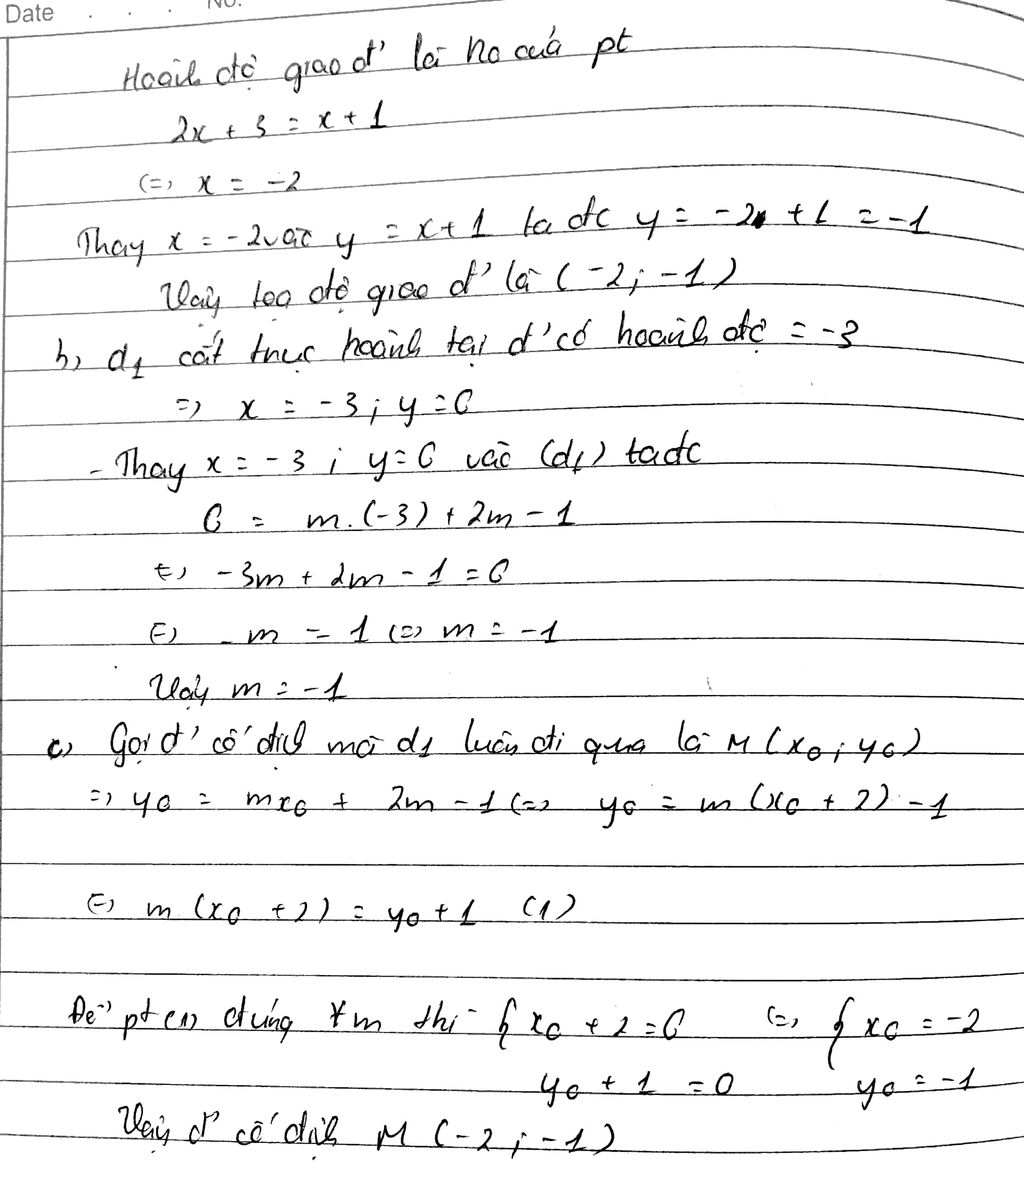 Date . . . No.
Hoành độ giao đ' là no của pt
2x + 3 = x + 1
(=) x = -2
Thay x = -2 vào y = x + 1 ta đc y = -2 + 1 = -1
Vậy tọa độ giao đ' là (-2; -1)
b, d1 cắt trục hoành tại đ' có hoành độ = -3
=) x = -3 ; y = 0
- Thay x = -3 ; y = 0 vào (d1) ta đc
0 = m.(-3) + 2m - 1
(=) -3m + 2m - 1 = 0
(=) -m = 1 (=) m = -1
Vậy m = -1
c) Gọi đ' cố định mà d1 luôn đi qua là M (x0 ; y0)
=) y0 = mx0 + 2m - 1 (=) y0 = m (x0 + 2) - 1
(=) m (x0 + 2) = y0 + 1 (1)
Để pt (1) đúng ∀m thì { x0 + 2 = 0 (=) { x0 = -2
y0 + 1 = 0 y0 = -1
Vậy đ' cố định M (-2 ; -1)